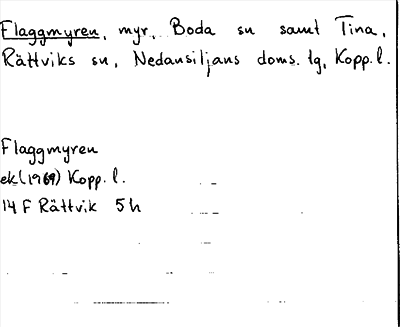 Flaggmyren, myr, Boda sn samt Tina,
Rättviks sn, Nedansiljans doms. tg, Kopp. l.
Flaggmyren
ek (1969) Kopp. l.
14 F Rättvik 5h